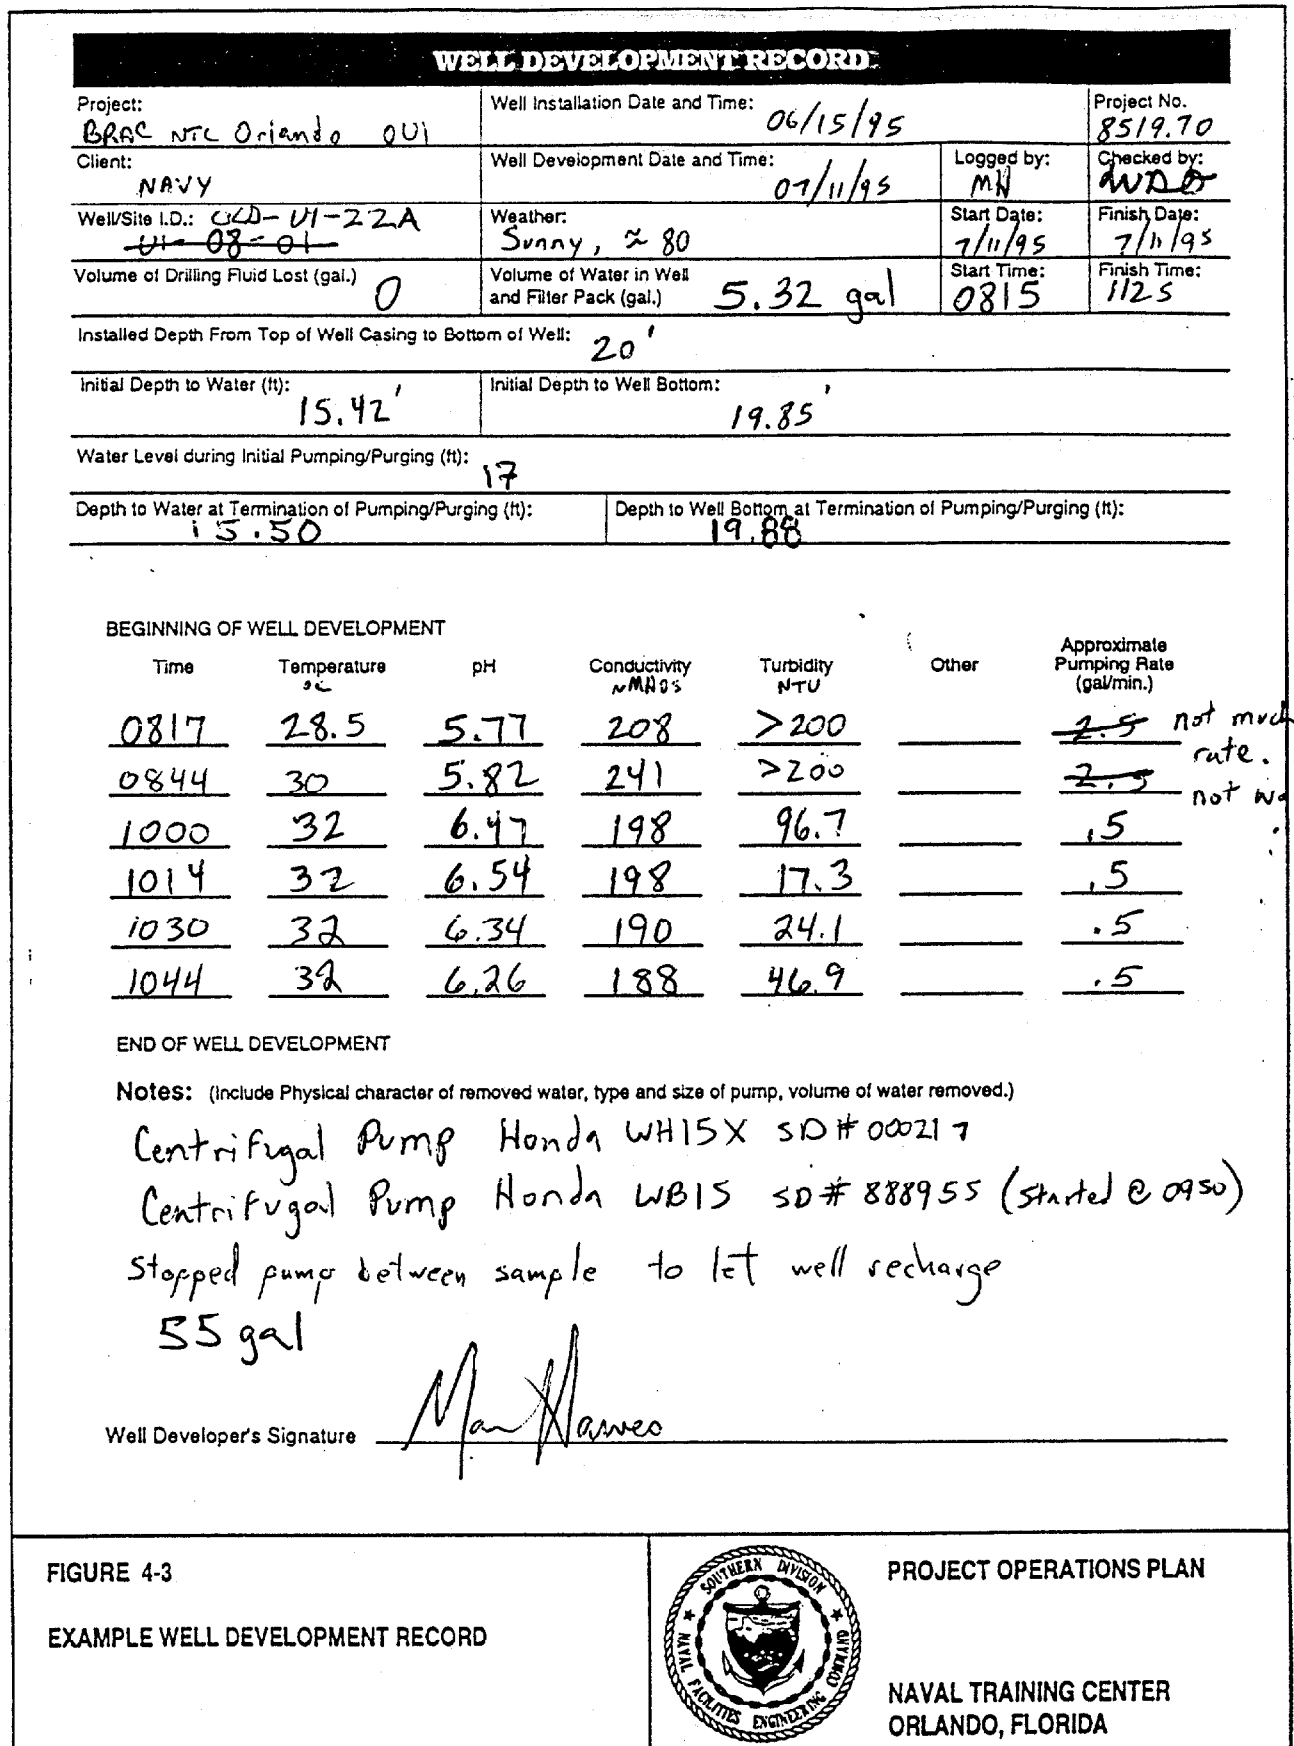 WELL DEVELOPMENT RECORD
Project:
BRAC NTC Orlando OU1
Well Installation Date and Time:
06/15/95
Project No.
8519.70
Client:
NAVY
Well Development Date and Time:
07/11/95
Logged by:
MH
Checked by:
Well/Site I.D.: OLD-U1-22A
U1-08-01
Weather:
Sunny, ≈ 80
Start Date:
7/11/95
Finish Date:
7/11/95
Volume of Drilling Fluid Lost (gal.)
0
Volume of Water in Well
and Filter Pack (gal.)
5.32 gal
Start Time:
0815
Finish Time:
1125
Installed Depth From Top of Well Casing to Bottom of Well:
20'
Initial Depth to Water (ft):
15.42'
Initial Depth to Well Bottom:
19.85'
Water Level during Initial Pumping/Purging (ft):
17
Depth to Water at Termination of Pumping/Purging (ft):
15.50
Depth to Well Bottom at Termination of Pumping/Purging (ft):
19.88
BEGINNING OF WELL DEVELOPMENT
Time Temperature °C pH Conductivity Turbidity NTU Other Approximate Pumping Rate (gal/min.)
0817 28.5 5.77 208 >200 2.5 not much
rate.
0844 30 5.82 241 >200 2.5
not
1000 32 6.47 198 96.7 .5
1014 32 6.54 198 17.3 .5
1030 32 6.34 190 24.1 .5
1044 32 6.26 188 46.9 .5
END OF WELL DEVELOPMENT
Notes: (Include Physical character of removed water, type and size of pump, volume of water removed.)
Centrifugal Pump Honda WH15X SD# 000217
Centrifugal Pump Honda WB15 SD# 888955 (started @ 0950)
Stopped pump between sample to let well recharge
55 gal
Well Developer's Signature
FIGURE 4-3
EXAMPLE WELL DEVELOPMENT RECORD
SOUTHERN DIVISION
NAVAL FACILITIES ENGINEERING COMMAND
PROJECT OPERATIONS PLAN
NAVAL TRAINING CENTER
ORLANDO, FLORIDA